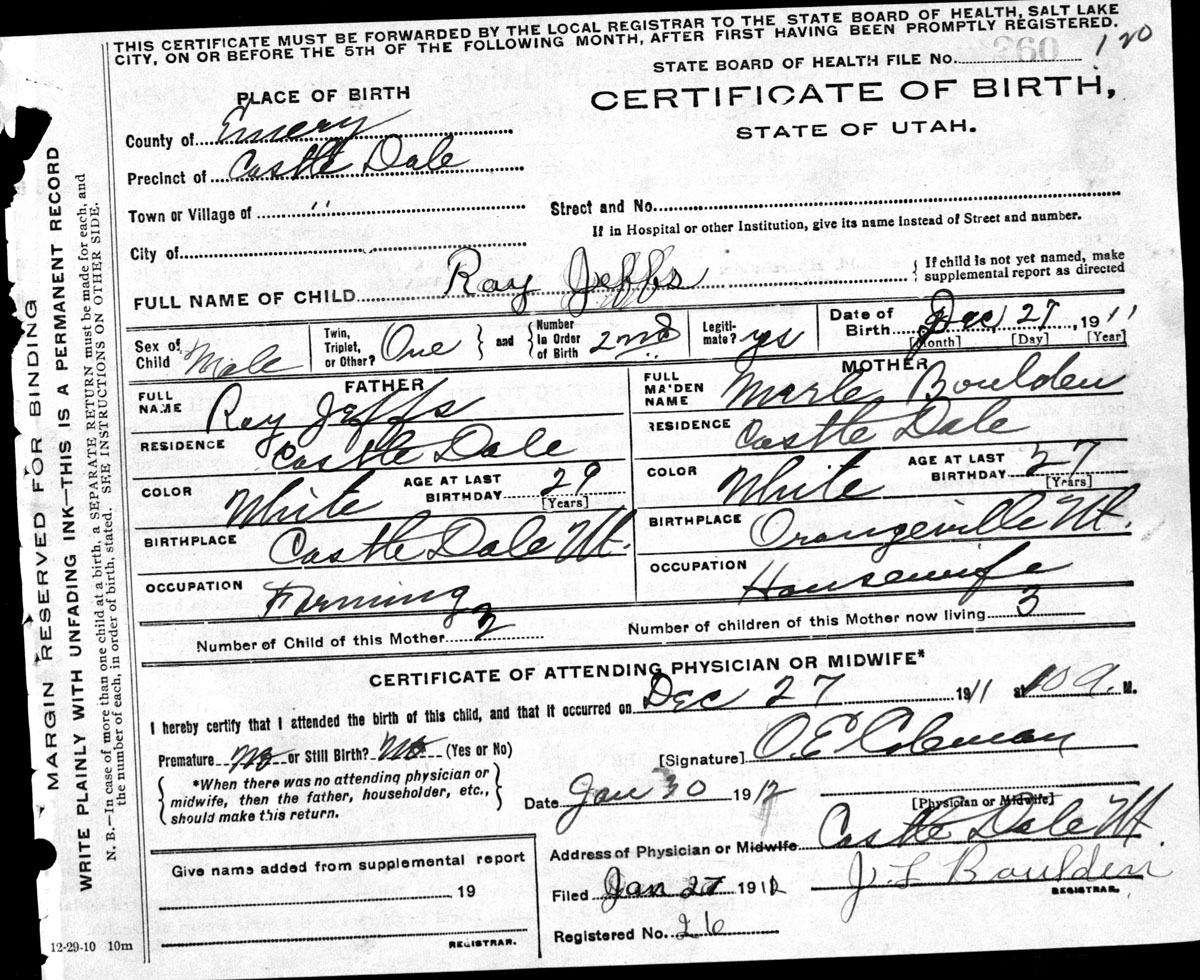 THIS CERTIFICATE MUST BE FORWARDED BY THE LOCAL REGISTRAR TO THE STATE BOARD OF HEALTH, SALT LAKE
CITY, ON OR BEFORE THE 5TH OF THE FOLLOWING MONTH, AFTER FIRST HAVING BEEN PROMPTLY REGISTERED.
STATE BOARD OF HEALTH FILE No. 120
360
PLACE OF BIRTH
CERTIFICATE OF BIRTH,
STATE OF UTAH.
County of Emery
Precinct of Castle Dale
Town or Village of "
Street and No.
If in Hospital or other Institution, give its name instead of Street and number.
City of
FULL NAME OF CHILD Ray Jeffs
{ If child is not yet named, make
supplemental report as directed
Sex of Child Male
Twin, Triplet, or Other? One } and { Number in Order of Birth 2nd
Legiti- mate? yes
Date of Birth Dec 27, 1911
[Month] [Day] [Year]
FATHER
FULL NAME Ray Jeffs
RESIDENCE Castle Dale
COLOR White AGE AT LAST BIRTHDAY 29
[Years]
BIRTHPLACE Castle Dale Ut.
OCCUPATION Farming
MOTHER
FULL MAIDEN NAME Merle Boulden
RESIDENCE Castle Dale
COLOR White AGE AT LAST BIRTHDAY 27
[Years]
BIRTHPLACE Orangeville Ut.
OCCUPATION Housewife
Number of Child of this Mother 2 Number of children of this Mother now living 3
CERTIFICATE OF ATTENDING PHYSICIAN OR MIDWIFE*
I hereby certify that I attended the birth of this child, and that it occurred on Dec 27 1911 at 10 a. M.
Premature No or Still Birth? No (Yes or No)
[Signature] O.E. Coleman
{ *When there was no attending physician or
midwife, then the father, householder, etc.,
should make this return. }
Date Jan 30 1912
[Physician or Midwife]
Address of Physician or Midwife Castle Dale Ut.
Give name added from supplemental report
19
REGISTRAR.
Filed Jan 27 1912 J L Boulden
REGISTRAR.
Registered No. 26
12-29-10 10m
MARGIN RESERVED FOR BINDING
WRITE PLAINLY WITH UNFADING INK—THIS IS A PERMANENT RECORD
N. B.—In case of more than one child at a birth, a SEPARATE RETURN must be made for each, and
the number of each, in order of birth, stated. SEE INSTRUCTIONS ON OTHER SIDE.